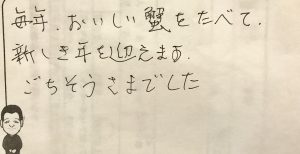 毎年、おいしい蟹をたべて、
新しき年を迎えます。
ごちそうさまでした